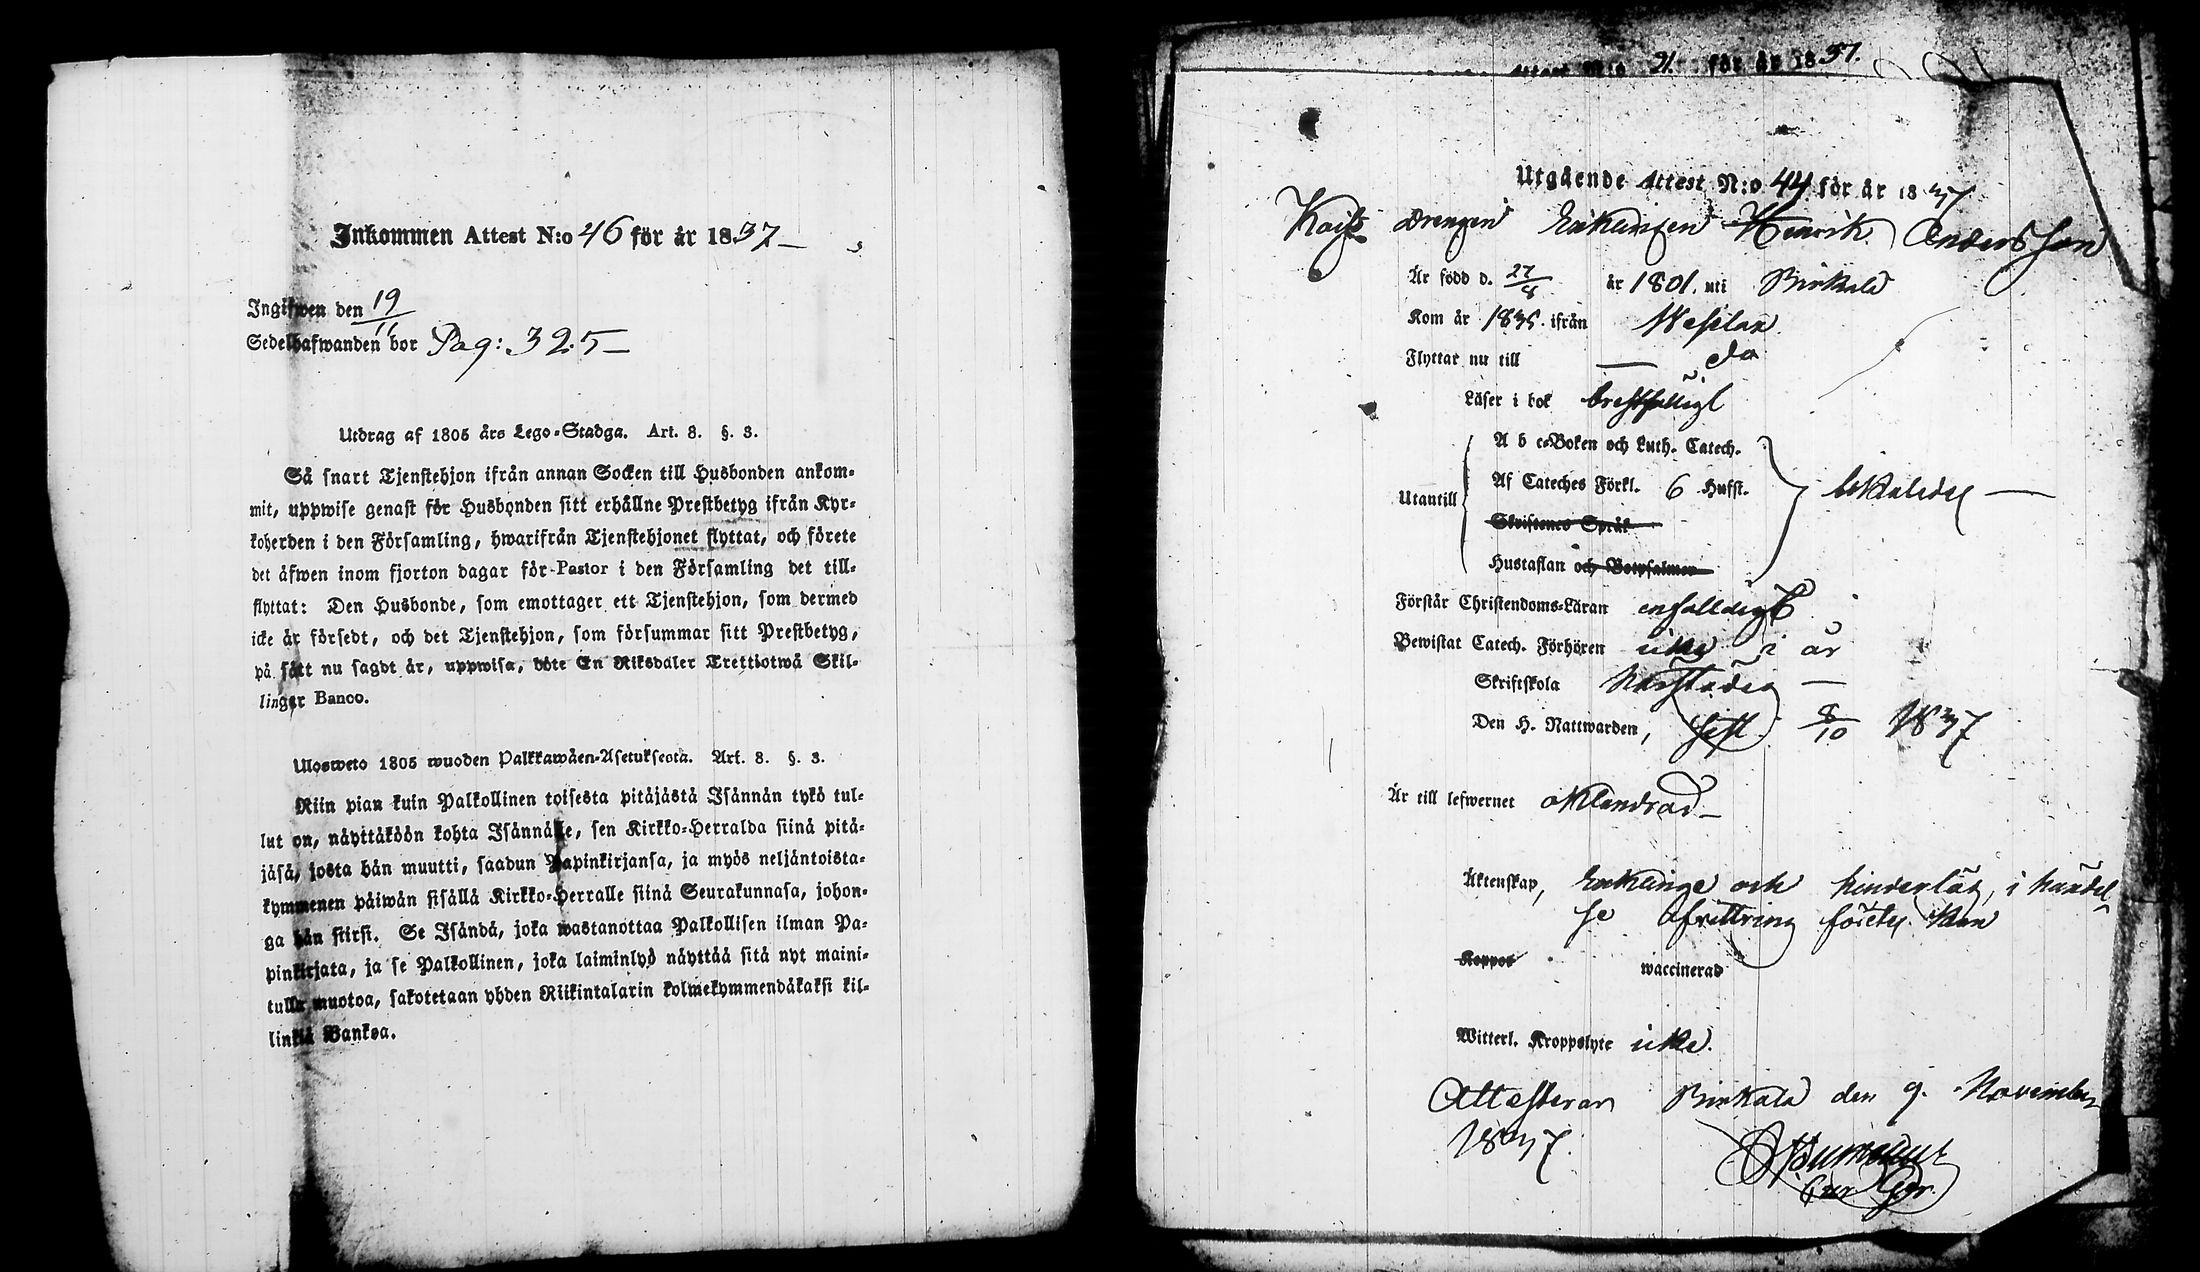 Inkommen Attest N:o 46 för år 1837
Ingifwen den 19/11
Sedelhafwanden bor Pag: 325
Utdrag af 1805 års Lego-Stadga. Art. 8. §. 3.
Så snart Tjenstehjon ifrån annan Socken till Husbonden ankom-
mit, uppwise genast för Husbonden sitt erhållne Prestbetyg ifrån Kyr-
koherden i den Församling, hwarifrån Tjenstehjonet flyttat, och förete
det äfwen inom fjorton dagar för Pastor i den Församling det till-
flyttat: Den Husbonde, som emottager ett Tjenstehjon, som dermed
icke är försedt, och det Tjenstehjon, som försummar sitt Prestbetyg,
på sått nu sagdt är, uppwisa, böte En Riksdaler Trettiotwå Skil-
lingar Banco.
Ulosweto 1805 wuoden Palkkawäen-Asetuksesta. Art. 8. §. 3.
Niin pian kuin Palkollinen toisesta pitäjästä Isännän tykö tul-
lut on, näyttäköön kohta Isännälle, sen Kirkko-Herralda siinä pitä-
jäsä, josta hän muutti, saadun Papinkirjansa, ja myös neljäntoista-
kymmenen päiwän sisällä Kirkko-Herralle siinä Seurakunnasa, johon-
ga hän siirsi. Se Isändä, joka wastanottaa Palkollisen ilman Pa-
pinkirjata, ja se Palkollinen, joka laiminlyö näyttää sitä nyt maini-
tulla muotoa, sakotetaan yhden Riikintalarin kolmekymmendäkaksi kil-
linkiä Bankoa.
Attest N:o 21. för år 1837.
Utgående Attest N:o 44 för år 1837
drengen Enklingen Henrik Andersson
Är född d. 27/8 år 1801. uti Birkala
Kom år 1835. ifrån Wesilax
Flyttar nu till — do
Läser i bok bristfälligt
Utantill
A b c-Boken och Luth. Catech.
Af Cateches Förkl. 6 Hufst.
Skriftenes Språk
Hustaflan och Botpsalmen
Förstår Christendoms-Läran enfalldigt
Bewistat Catech. Förhören icke i år
Skriftskola
Den H. Nattwarden, sist 8/10 1837
Är till lefwernet oklandrad
Äktenskap, Enklinge och hinderlös, i händel-
se afvittring företes kan
Koppor waccinerad
Witterl. Kroppslyte icke.
Attesterar Birkala den 9. November
1837.